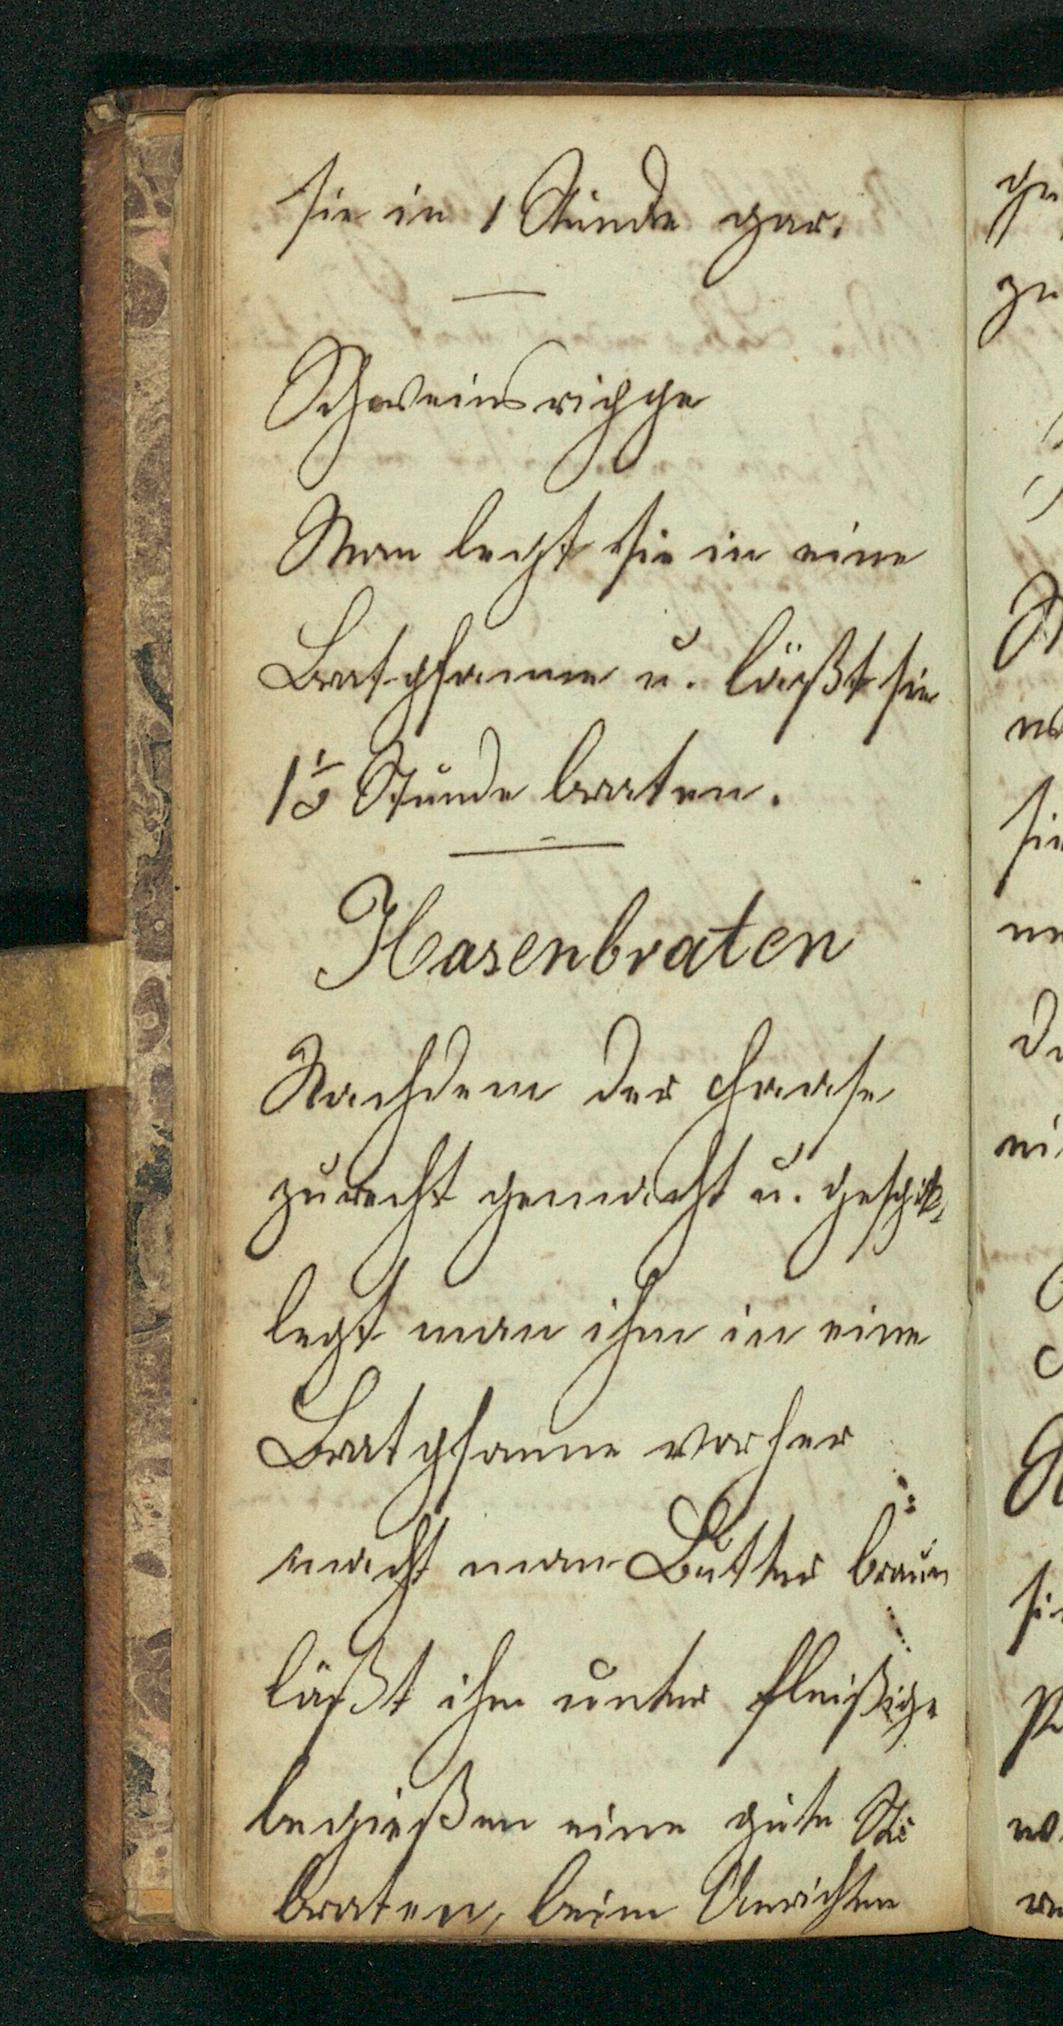 sie in 1 Stunde gar.
Schweinsrippe
Man legt sie in eine
Bratpfanne u. läßt sie
1½ Stunde braten.
Hasenbraten
Nachdem der Haase
zurecht gemacht u. gespikt,
legt man ihn in eine
Bratpfanne vorher
macht man Butter braun
läßt ihn unter fleißige
begießen eine gute St:
braten, beim Anrichten